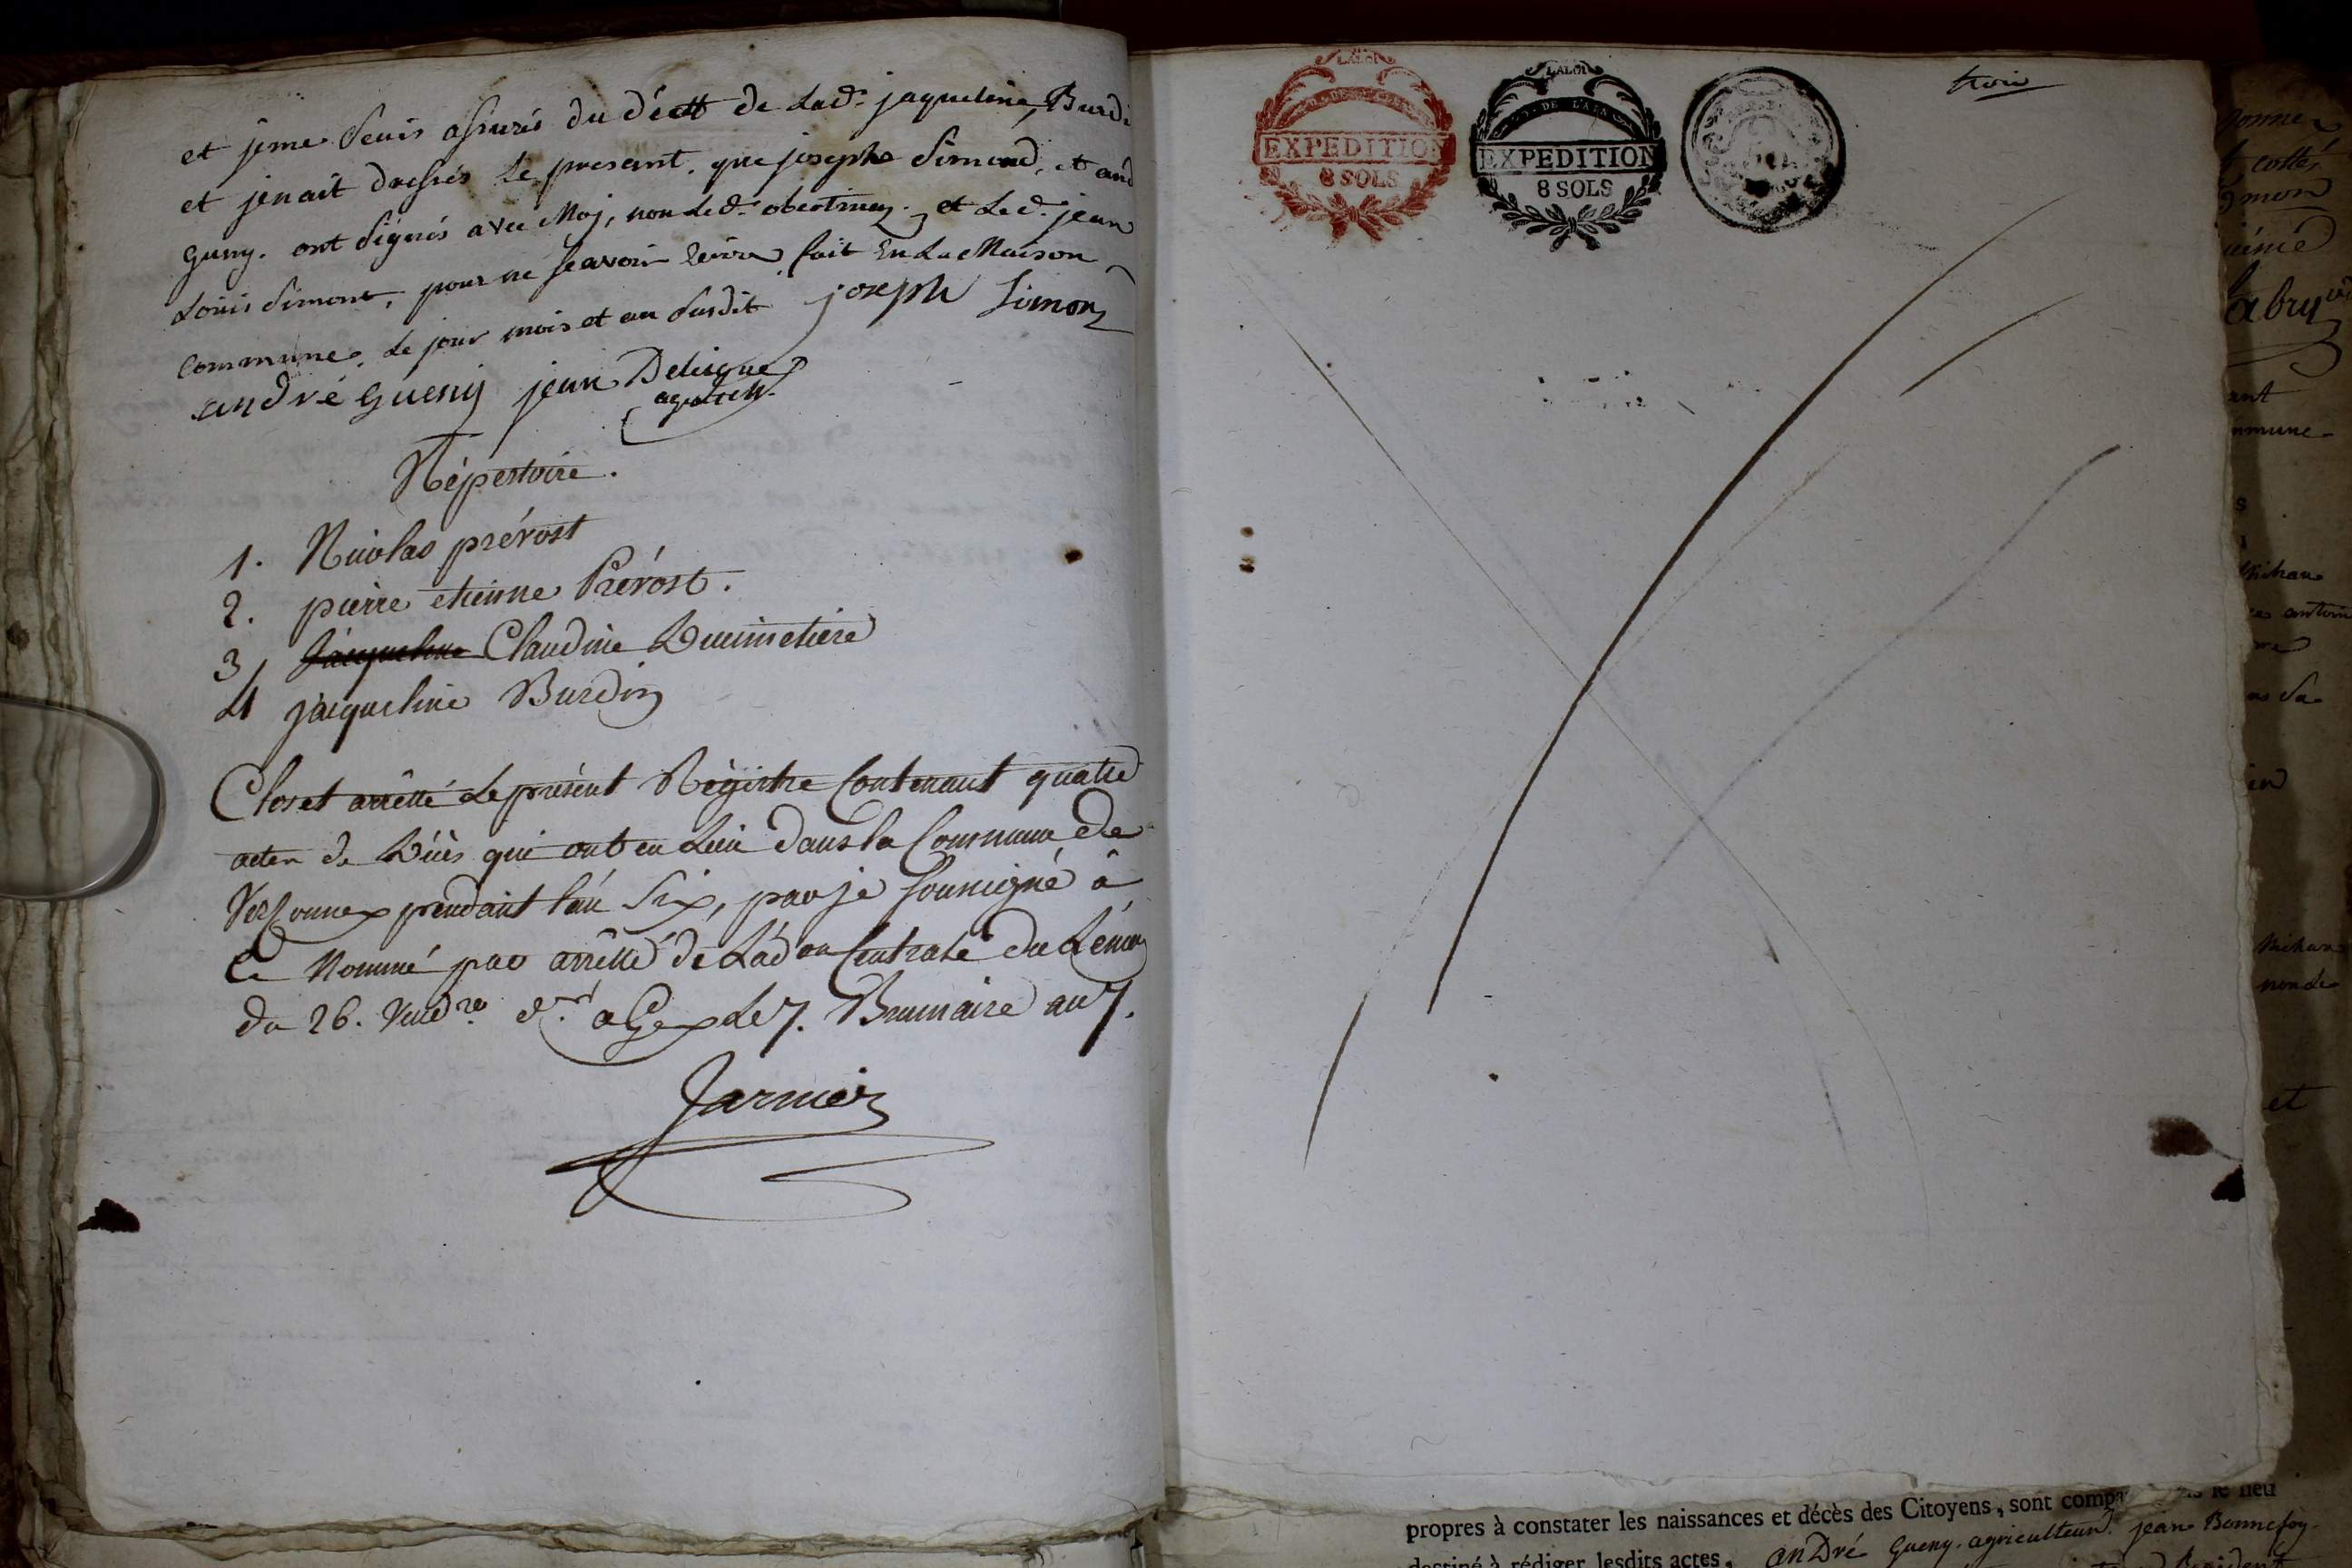 et jeme Seuis assurés du déctt de Lad.e jaqueline Burdi
et jenait dressés Le present. que joseph Simond, et and
Gueny. ont Signés avec Moj, non Le d. et Le d. jean
Louis Simont, pour ne Scavoir fait En La Maison
commune. Le jour mois et an Susdit joseph Simon
andré Gueny jean Delesque
agent
Répertoire.
1. Nicolas prévost
2. pierre etienne Prévost.
3, Jacqueline Claudine Dumetiere
4 jacqueline Burdin
Clos et arrêtté Le présent Régistre Contenant quatre
actes de Décès qui ont eu Lieu dans la Commune de
Versonnex pendant l'an Six, par je Soussigné à
Ce Nommé par arrêtté de L'ad.on Centrale du Léman
du 26. Vend.re d.er a Gex Le 7. Brumaire an 7.
Jarnier
LA LOI
EXPEDITION
8 SOLS
LA LOI
DE L'AIN
EXPEDITION
8 SOLS
trois
abry
commune
et
propres à constater les naissances et décès des Citoyens, sont le lieu
destiné à rédiger lesdits actes, anDré Gueny. agriculteur. jean Bonnefoy.